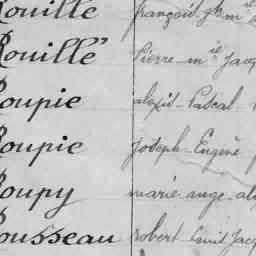 Rouillé françois-j.h m ie
Rouillé Pierre-m ie Jacq
Roupie alexis-Pascal
Roupie Joseph-Eugène
Roupy marie ange-al
Rousseau robert Jacq